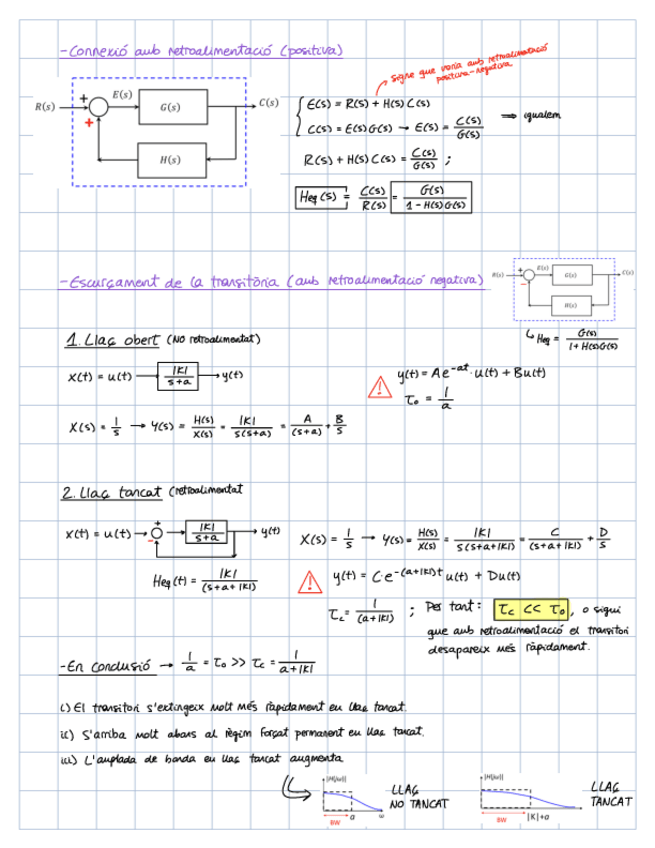 -Connexió amb retroalimentació (positiva)
signe que varia amb retroalimentació
positiva-negativa
R(s) + E(s) G(s) C(s)
+
H(s)
E(s) = R(s) + H(s)C(s)
C(s) = E(s)G(s) → E(s) = C(s)/G(s) ⇒ igualem
R(s) + H(s)C(s) = C(s)/G(s) ;
Heq(s) = C(s)/R(s) = G(s)/(1-H(s)G(s))
-Escurçament de la transitòria (amb retroalimentació negativa)
R(s) + E(s) G(s) C(s)
-
H(s)
↳ Heq = G(s)/(1+H(s)G(s))
1. Llaç obert (NO retroalimentat)
x(t) = u(t) → |K|/(s+a) → y(t)
! y(t) = Ae^(-at)·u(t) + Bu(t)
τo = 1/a
X(s) = 1/s → Y(s) = H(s)/X(s) = |K|/(s(s+a)) = A/(s+a) + B/s
2. Llaç tancat (retroalimentat
x(t) = u(t) → + - → |K|/(s+a) → y(t)
X(s) = 1/s → Y(s) = H(s)/X(s) = |K|/(s(s+a+|K|)) = C/(s+a+|K|) + D/s
Heq(t) = |K|/(s+a+|K|)
! y(t) = C·e^(-(a+|K|)t) u(t) + Du(t)
τc = 1/(a+|K|) ; Per tant: τc << τo, o sigui
que amb retroalimentació el transitori
desapareix més ràpidament.
-En conclusió → 1/a = τo >> τc = 1/(a+|K|)
i) El transitori s'extingeix molt més ràpidament en llaç tancat.
ii) S'arriba molt abans al règim forçat permanent en llaç tancat.
iii) L'amplada de banda en llaç tancat augmenta
|H(jω)|
BW a ω
LLAÇ
NO TANCAT
|H(jω)|
BW |K|+a
LLAÇ
TANCAT